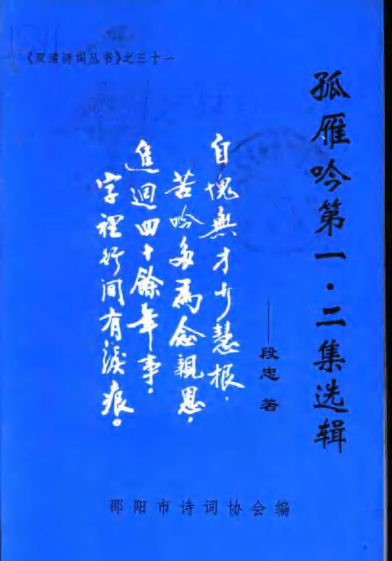 《双清诗词丛书》之三十一
孤雁吟第一·二集选辑
——段忠 著
自愧無才少慧根.
苦吟多為念親恩,
追迴四十餘年事.
字裡行间有淚痕。
邵阳市诗词协会编